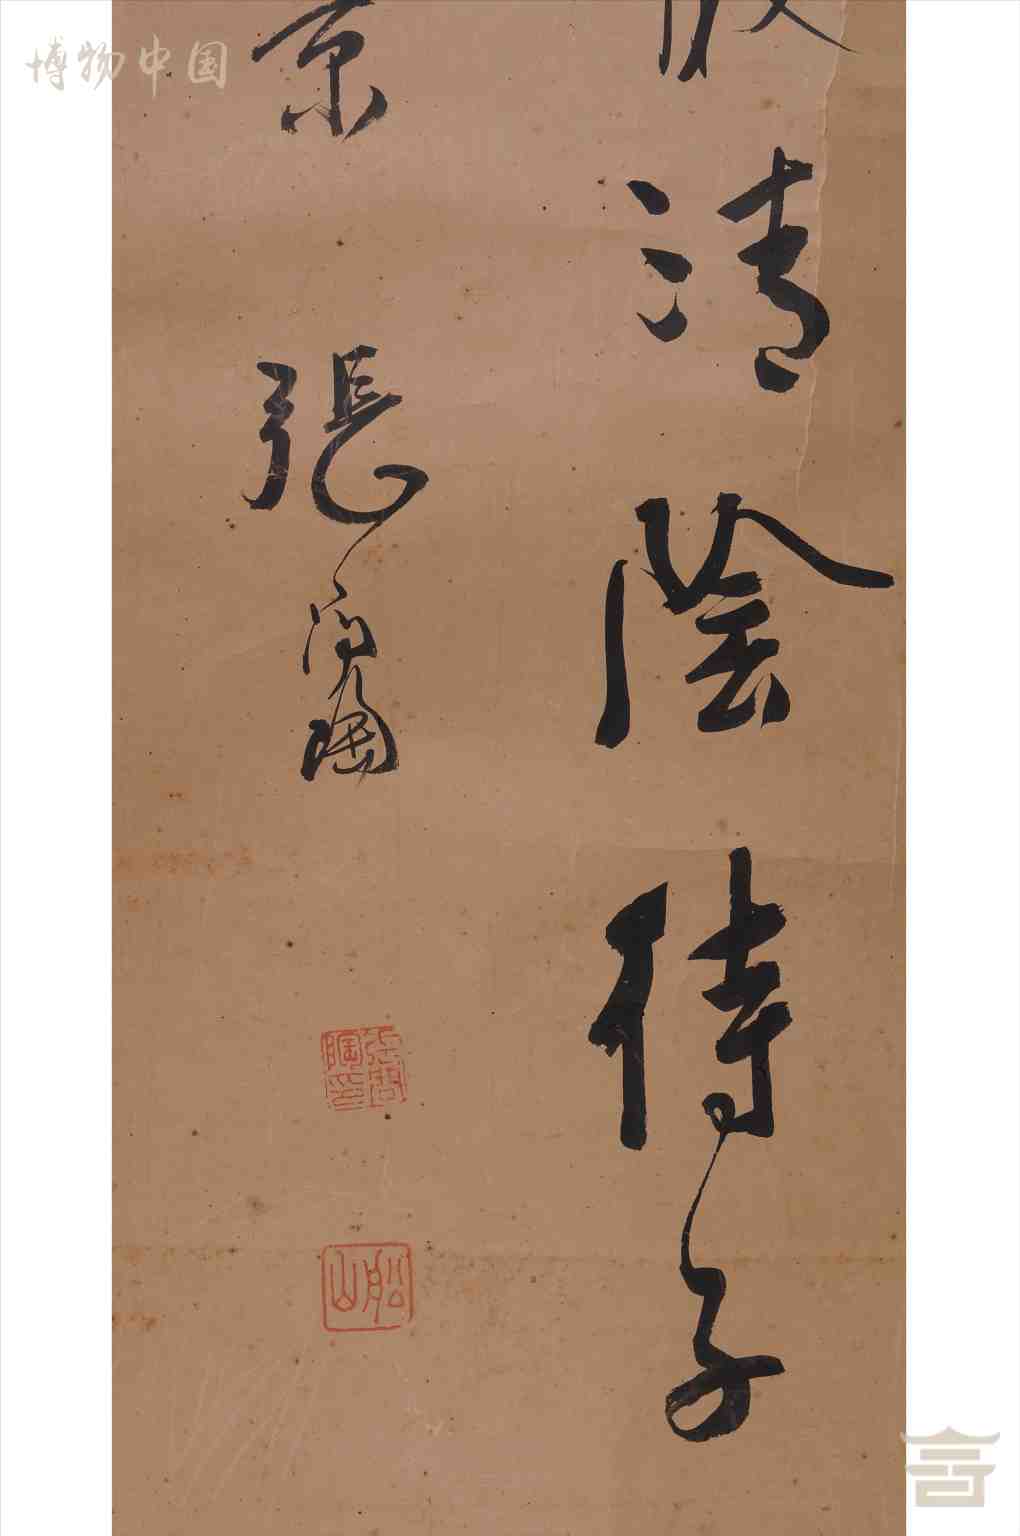 清陰待子
京
張問陶
張問陶印
船山
博物中国